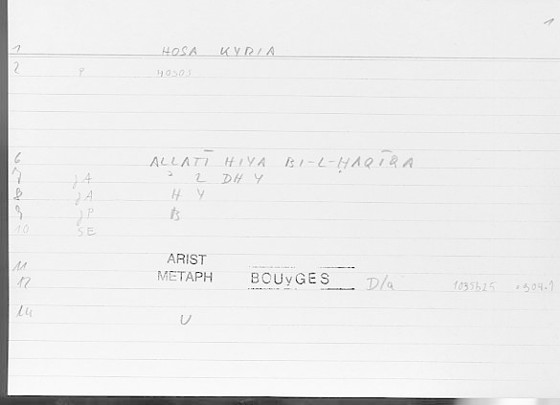 1
1 HOSA KYRIA
2 P HOSOS
6 ALLATĪ HIYA BI-L-ḤAQĪQA
7 JA ʾ L DH Y
8 JA H Y
9 JP B
10 SE
11 ARIST
12 METAPH BOUyGES D/a 1035b25
14 U